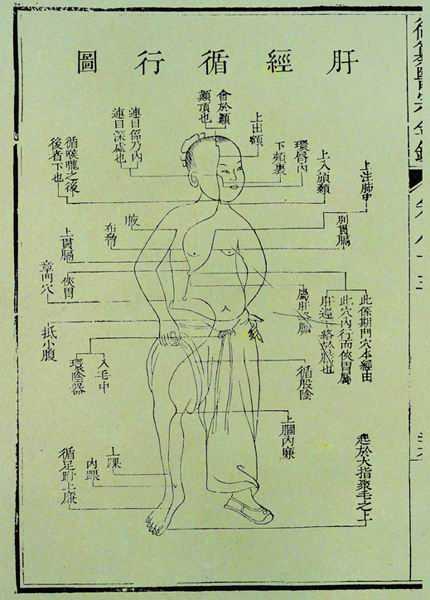 肝經循行圖
上注肺中
上入頏顙
環唇內
下頰裏
上出額
會於巔
顚頂也
連目係乃內
連目深處也
循喉嚨之後
後者下也
別貫膈
布脅
上貫膈
俠胃
章門穴
屬肝絡膽
此係期門穴本經由
此穴內行而俠胃屬
抵小腹
入毛中
環陰器
循股陰
上膕內廉
上踝
內踝
循足跗上廉
起於大指聚毛之上